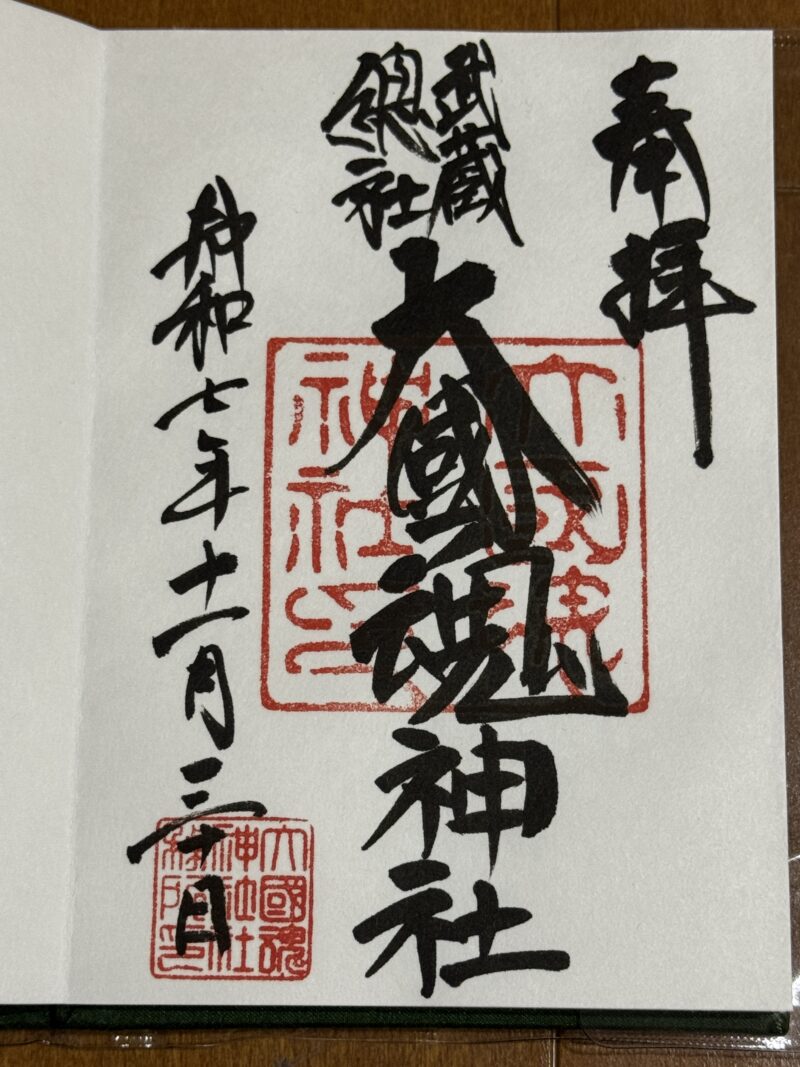 奉拝
武蔵
總社
大國魂神社
令和七年十一月三十日
大國魂
神社印
大國魂
神社社
務所印